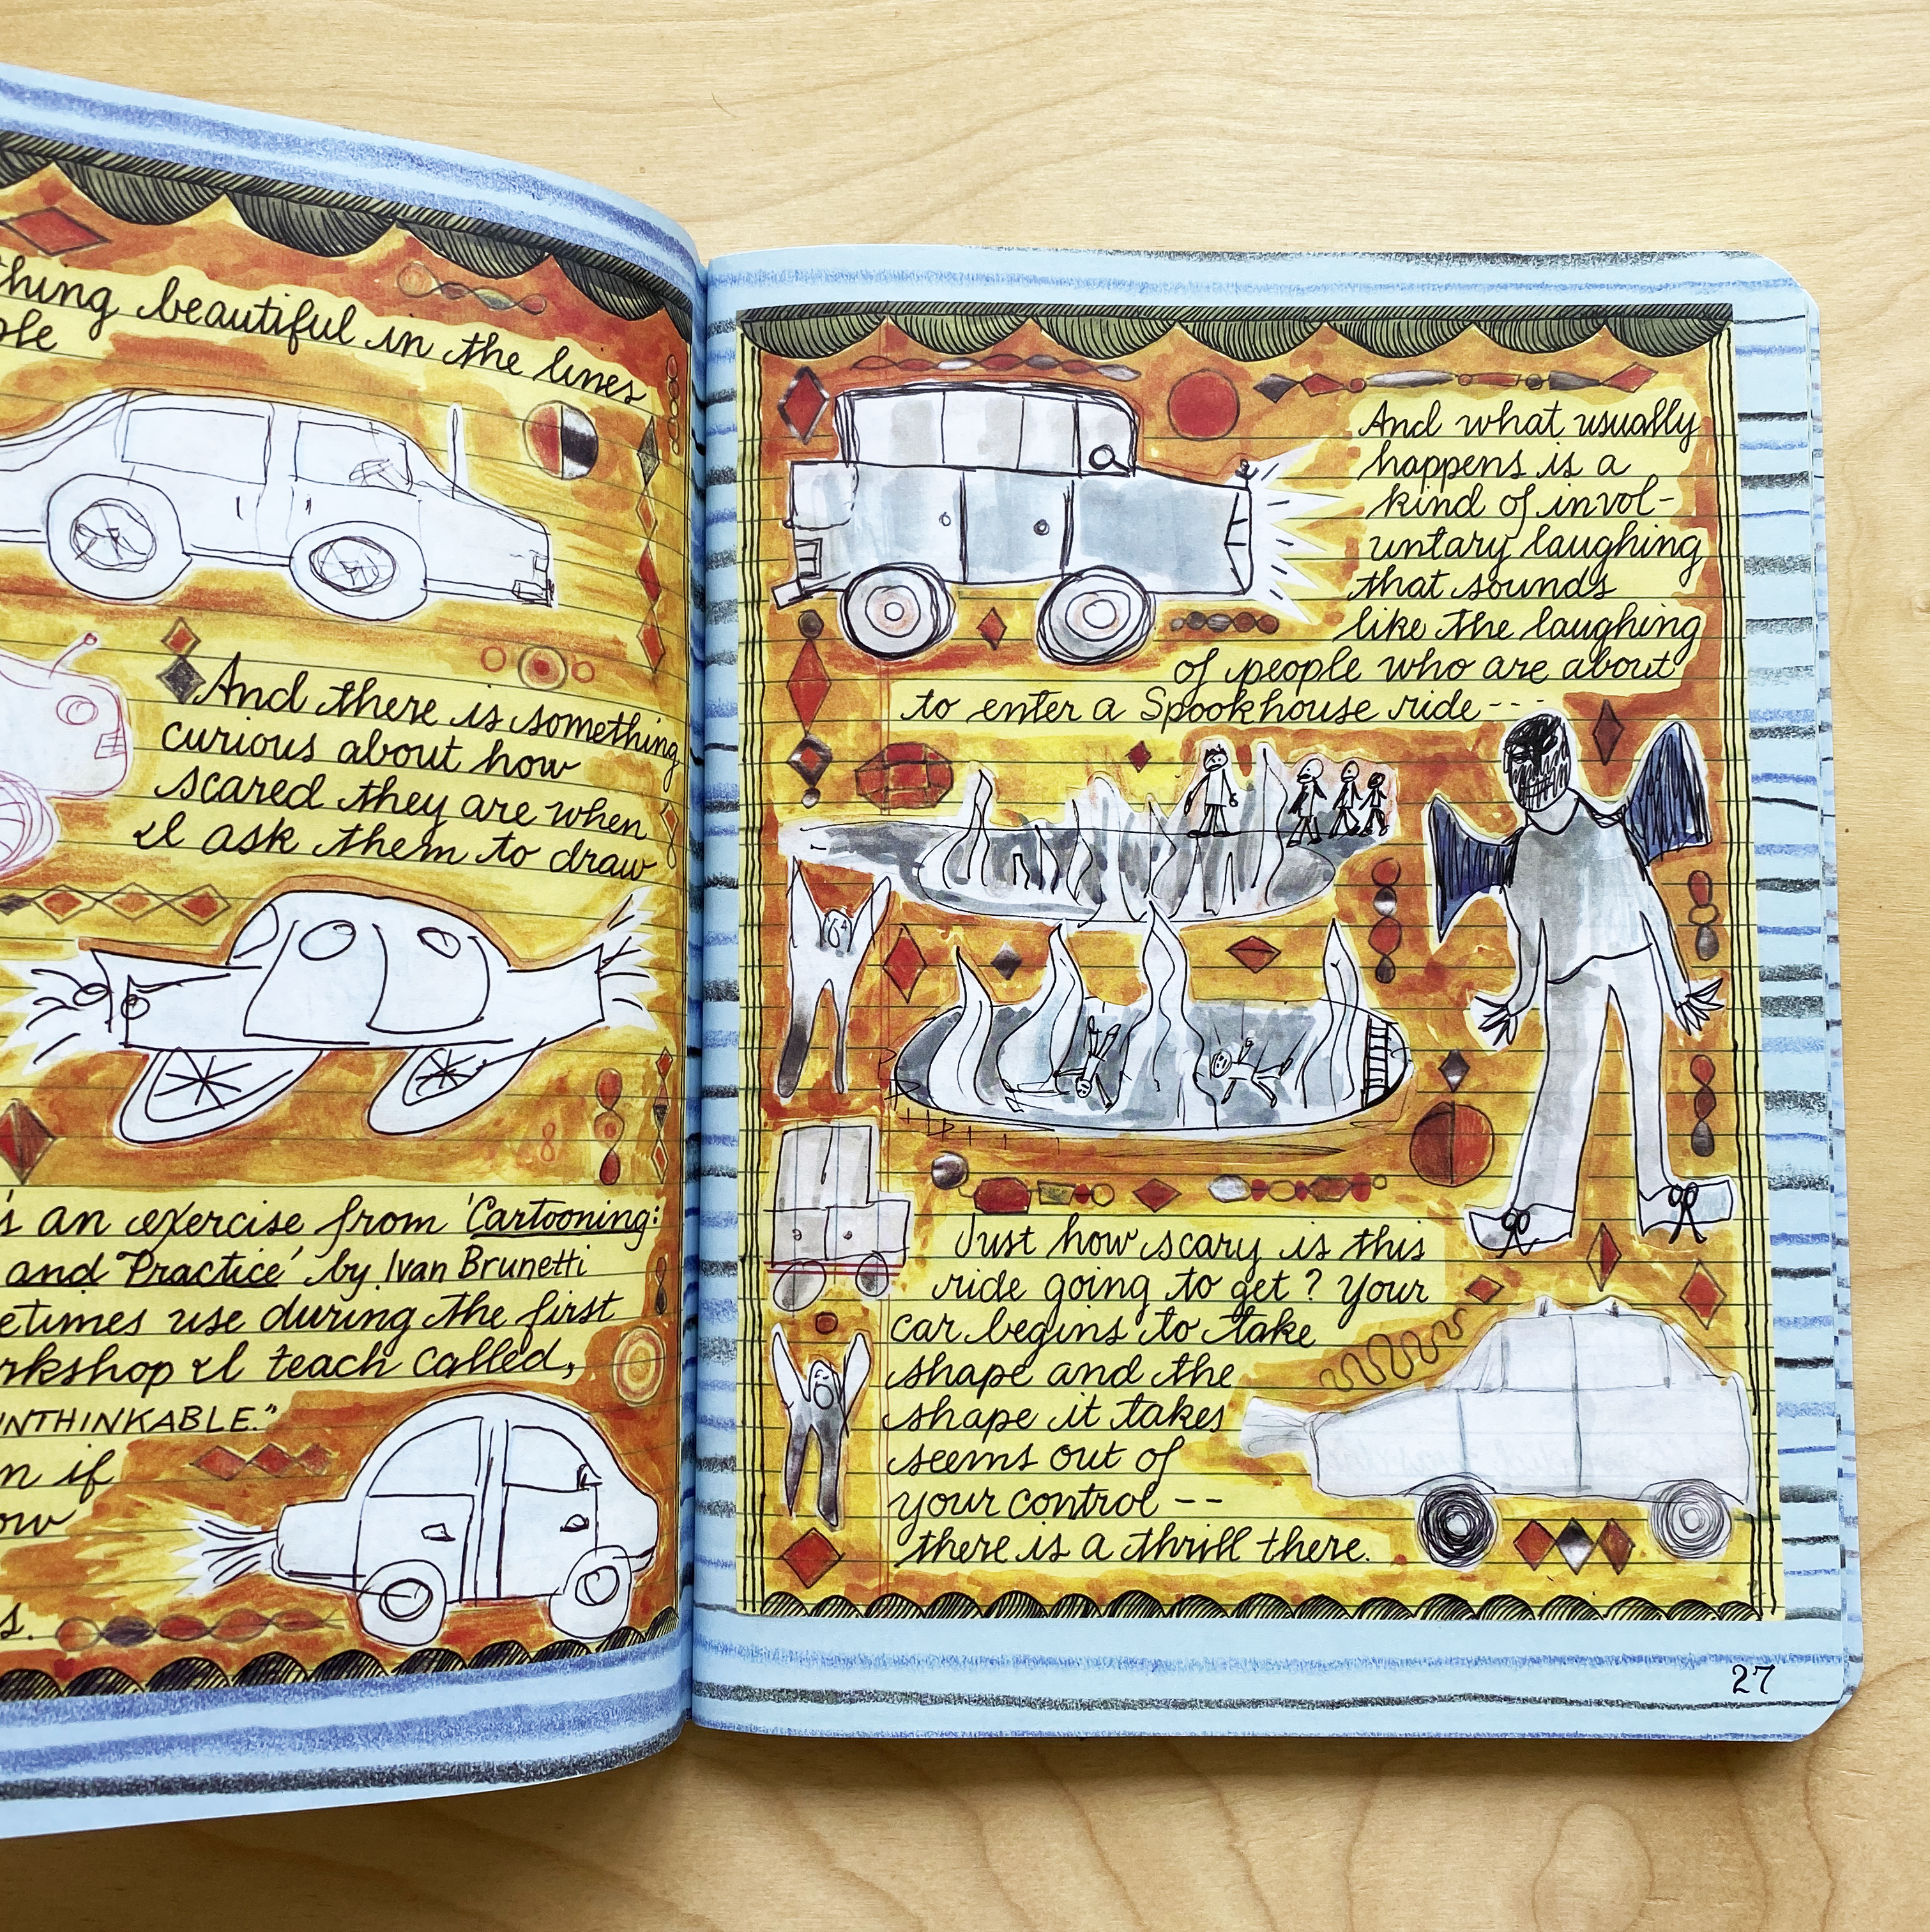 thing beautiful in the lines
ple
And there is something
curious about how
scared they are when
I ask them to draw
's an exercise from 'Cartooning:
and Practice' by Ivan Brunetti
etimes use during the first
rkshop I teach called,
INTHINKABLE."
n if
ow
s.
And what usually
happens is a
kind of invol-
untary laughing
that sounds
like the laughing
of people who are about
to enter a Spookhouse ride--
Just how scary is this
ride going to get? Your
car begins to take
shape and the
shape it takes
seems out of
your control --
there is a thrill there.
27